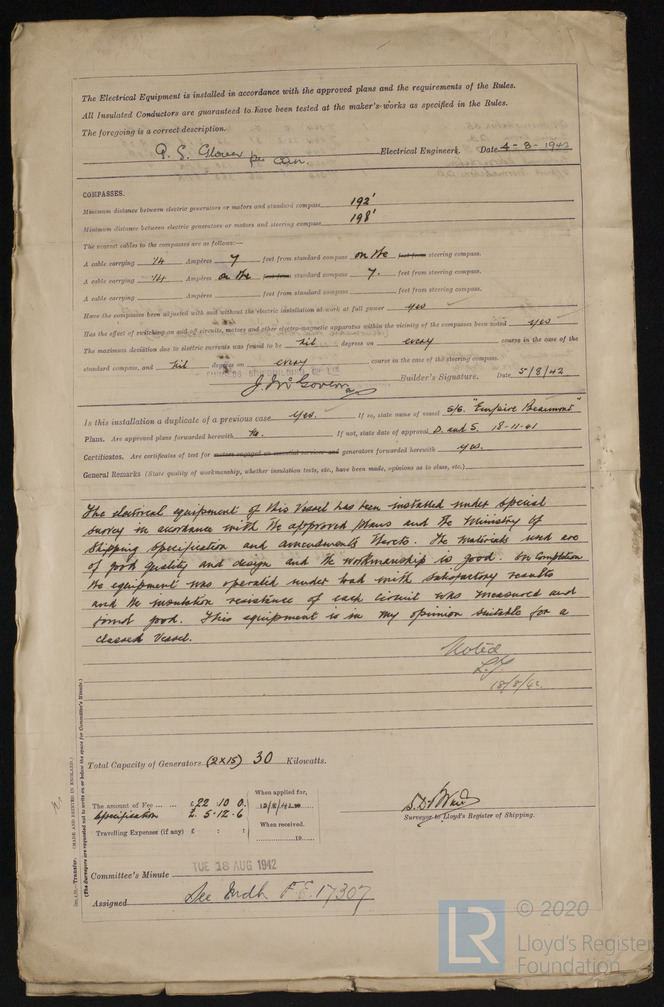 The Electrical Equipment is installed in accordance with the approved plans and the requirements of the Rules.
All Insulated Conductors are guaranteed to have been tested at the maker's works as specified in the Rules.
The foregoing is a correct description.
Electrical Engineers. Date 4-8-1942
COMPASSES.
Minimum distance between electric generators or motors and standard compass 192'
Minimum distance between electric generators or motors and steering compass 198'
The nearest cables to the compasses are as follows:—
A cable carrying 14 Ampères 7 feet from standard compass on the feet from steering compass.
A cable carrying 14 Ampères on the feet from standard compass 7. feet from steering compass.
A cable carrying Ampères feet from standard compass feet from steering compass.
Have the compasses been adjusted with and without the electric installation at work at full power yes
Has the effect of switching on and off circuits, motors and other electro-magnetic apparatus within the vicinity of the compasses been noted yes
The maximum deviation due to electric currents was found to be nil degrees on every course in the case of the
standard compass, and nil degrees on every course in the case of the steering compass.
J. McGovern Builder's Signature. Date 5/8/42
Is this installation a duplicate of a previous case yes. If so, state name of vessel S/S. "Empire Beaumont"
Plans. Are approved plans forwarded herewith No. If not, state date of approval D and S. 18-11-41
Certificates. Are certificates of test for motors engaged on essential services and generators forwarded herewith yes.
General Remarks (State quality of workmanship, whether insulation tests, etc., have been made, opinions as to class, etc.)
The electrical equipment of this Vessel has been installed under special
survey in accordance with the approved plans and the Ministry of
Shipping Specification and amendments thereto. The materials used are
of good quality and design and the workmanship is good. On Completion
the equipment was operated under load with satisfactory results
and the insulation resistance of each circuit was measured and
found good. This equipment is in my opinion suitable for a
classed Vessel.
Noted
18/8/42.
Total Capacity of Generators (2x15) 30 Kilowatts.
The amount of Fee ... ... £ 22 : 10 : 0.
When applied for,
12/8/42
Specification £ 5 - 12 - 6
When received.
Travelling Expenses (if any) £ : :
19
Surveyor to Lloyd's Register of Shipping.
TUE 18 AUG 1942
Committee's Minute
Assigned See F.E. 17307
(MADE AND PRINTED IN ENGLAND.)
(The Surveyors are requested not to write on or below the space for Committee's Minute.)
LR
© 2020
Lloyd's Register
Foundation